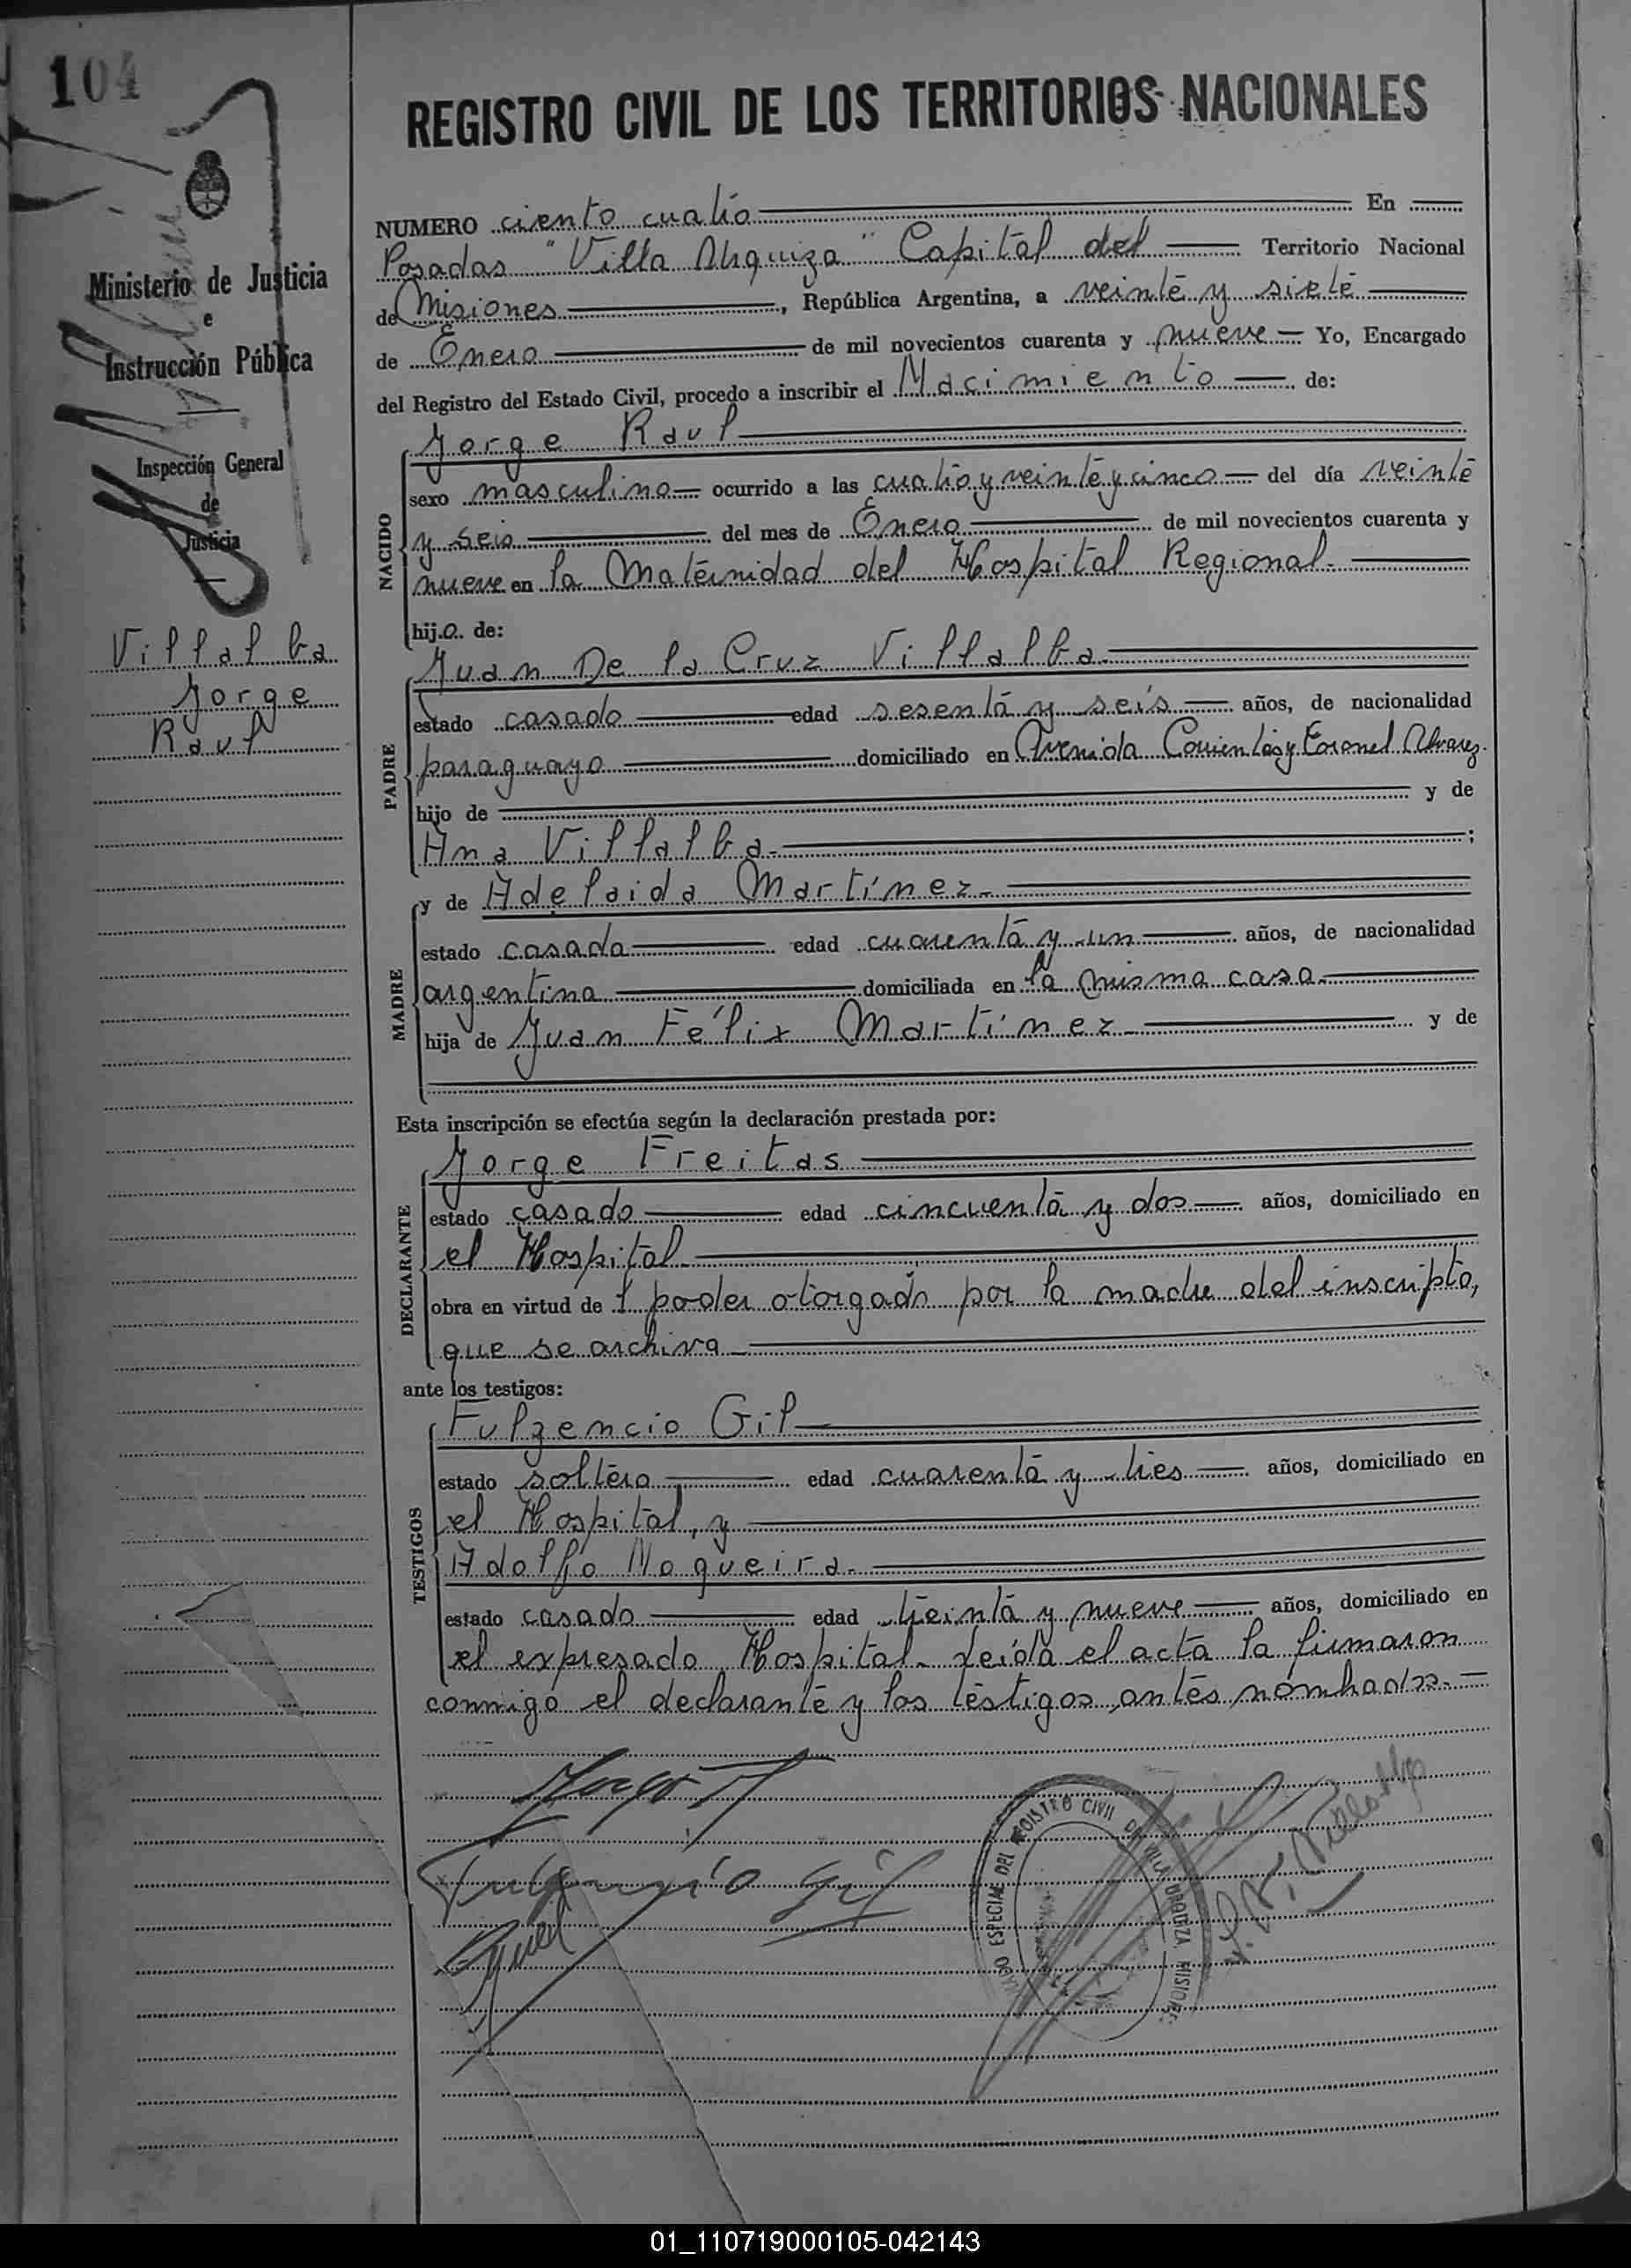 104
REGISTRO CIVIL DE LOS TERRITORIOS NACIONALES
Ministerio de Justicia
e
Instrucción Pública
Inspección General
de
Justicia
Villalba
Jorge
Raul
NUMERO ciento cuatro En
Posadas "Villa Urquiza" Capital del Territorio Nacional
de Misiones, República Argentina, a veinte y siete
de Enero de mil novecientos cuarenta y nueve Yo, Encargado
del Registro del Estado Civil, procedo a inscribir el Nacimiento de:
NACIDO
Jorge Raul
sexo masculino ocurrido a las cuatro y veinte y cinco del día veinte
y seis del mes de Enero de mil novecientos cuarenta y
nueve en la Maternidad del Hospital Regional.
hijo de:
PADRE
Juan De la Cruz Villalba.
estado casado edad sesenta y seis años, de nacionalidad
paraguayo domiciliado en Avenida Corrientes y Coronel Alvarez.
hijo de y de
Ana Villalba. ;
MADRE
y de Adelaida Martínez.
estado casada edad cuarenta y un años, de nacionalidad
argentina domiciliada en la misma casa.
hija de Juan Félix Martínez y de
Esta inscripción se efectúa según la declaración prestada por:
DECLARANTE
Jorge Freitas
estado casado edad cincuenta y dos años, domiciliado en
el Hospital
obra en virtud de l poder otorgado por la madre del inscripto,
que se archiva
ante los testigos:
TESTIGOS
Fulgencio Gil
estado soltero edad cuarenta y tres años, domiciliado en
el Hospital, y
Adolfo Nogueira.
estado casado edad treinta y nueve años, domiciliado en
el expresado Hospital. Leída el acta la firmaron
conmigo el declarante y los testigos antes nombrados.
Fulgencio Gil
ESPECIAL DEL REGISTRO CIVIL DE VILLA URQUIZA MISIONES
01_110719000105-042143